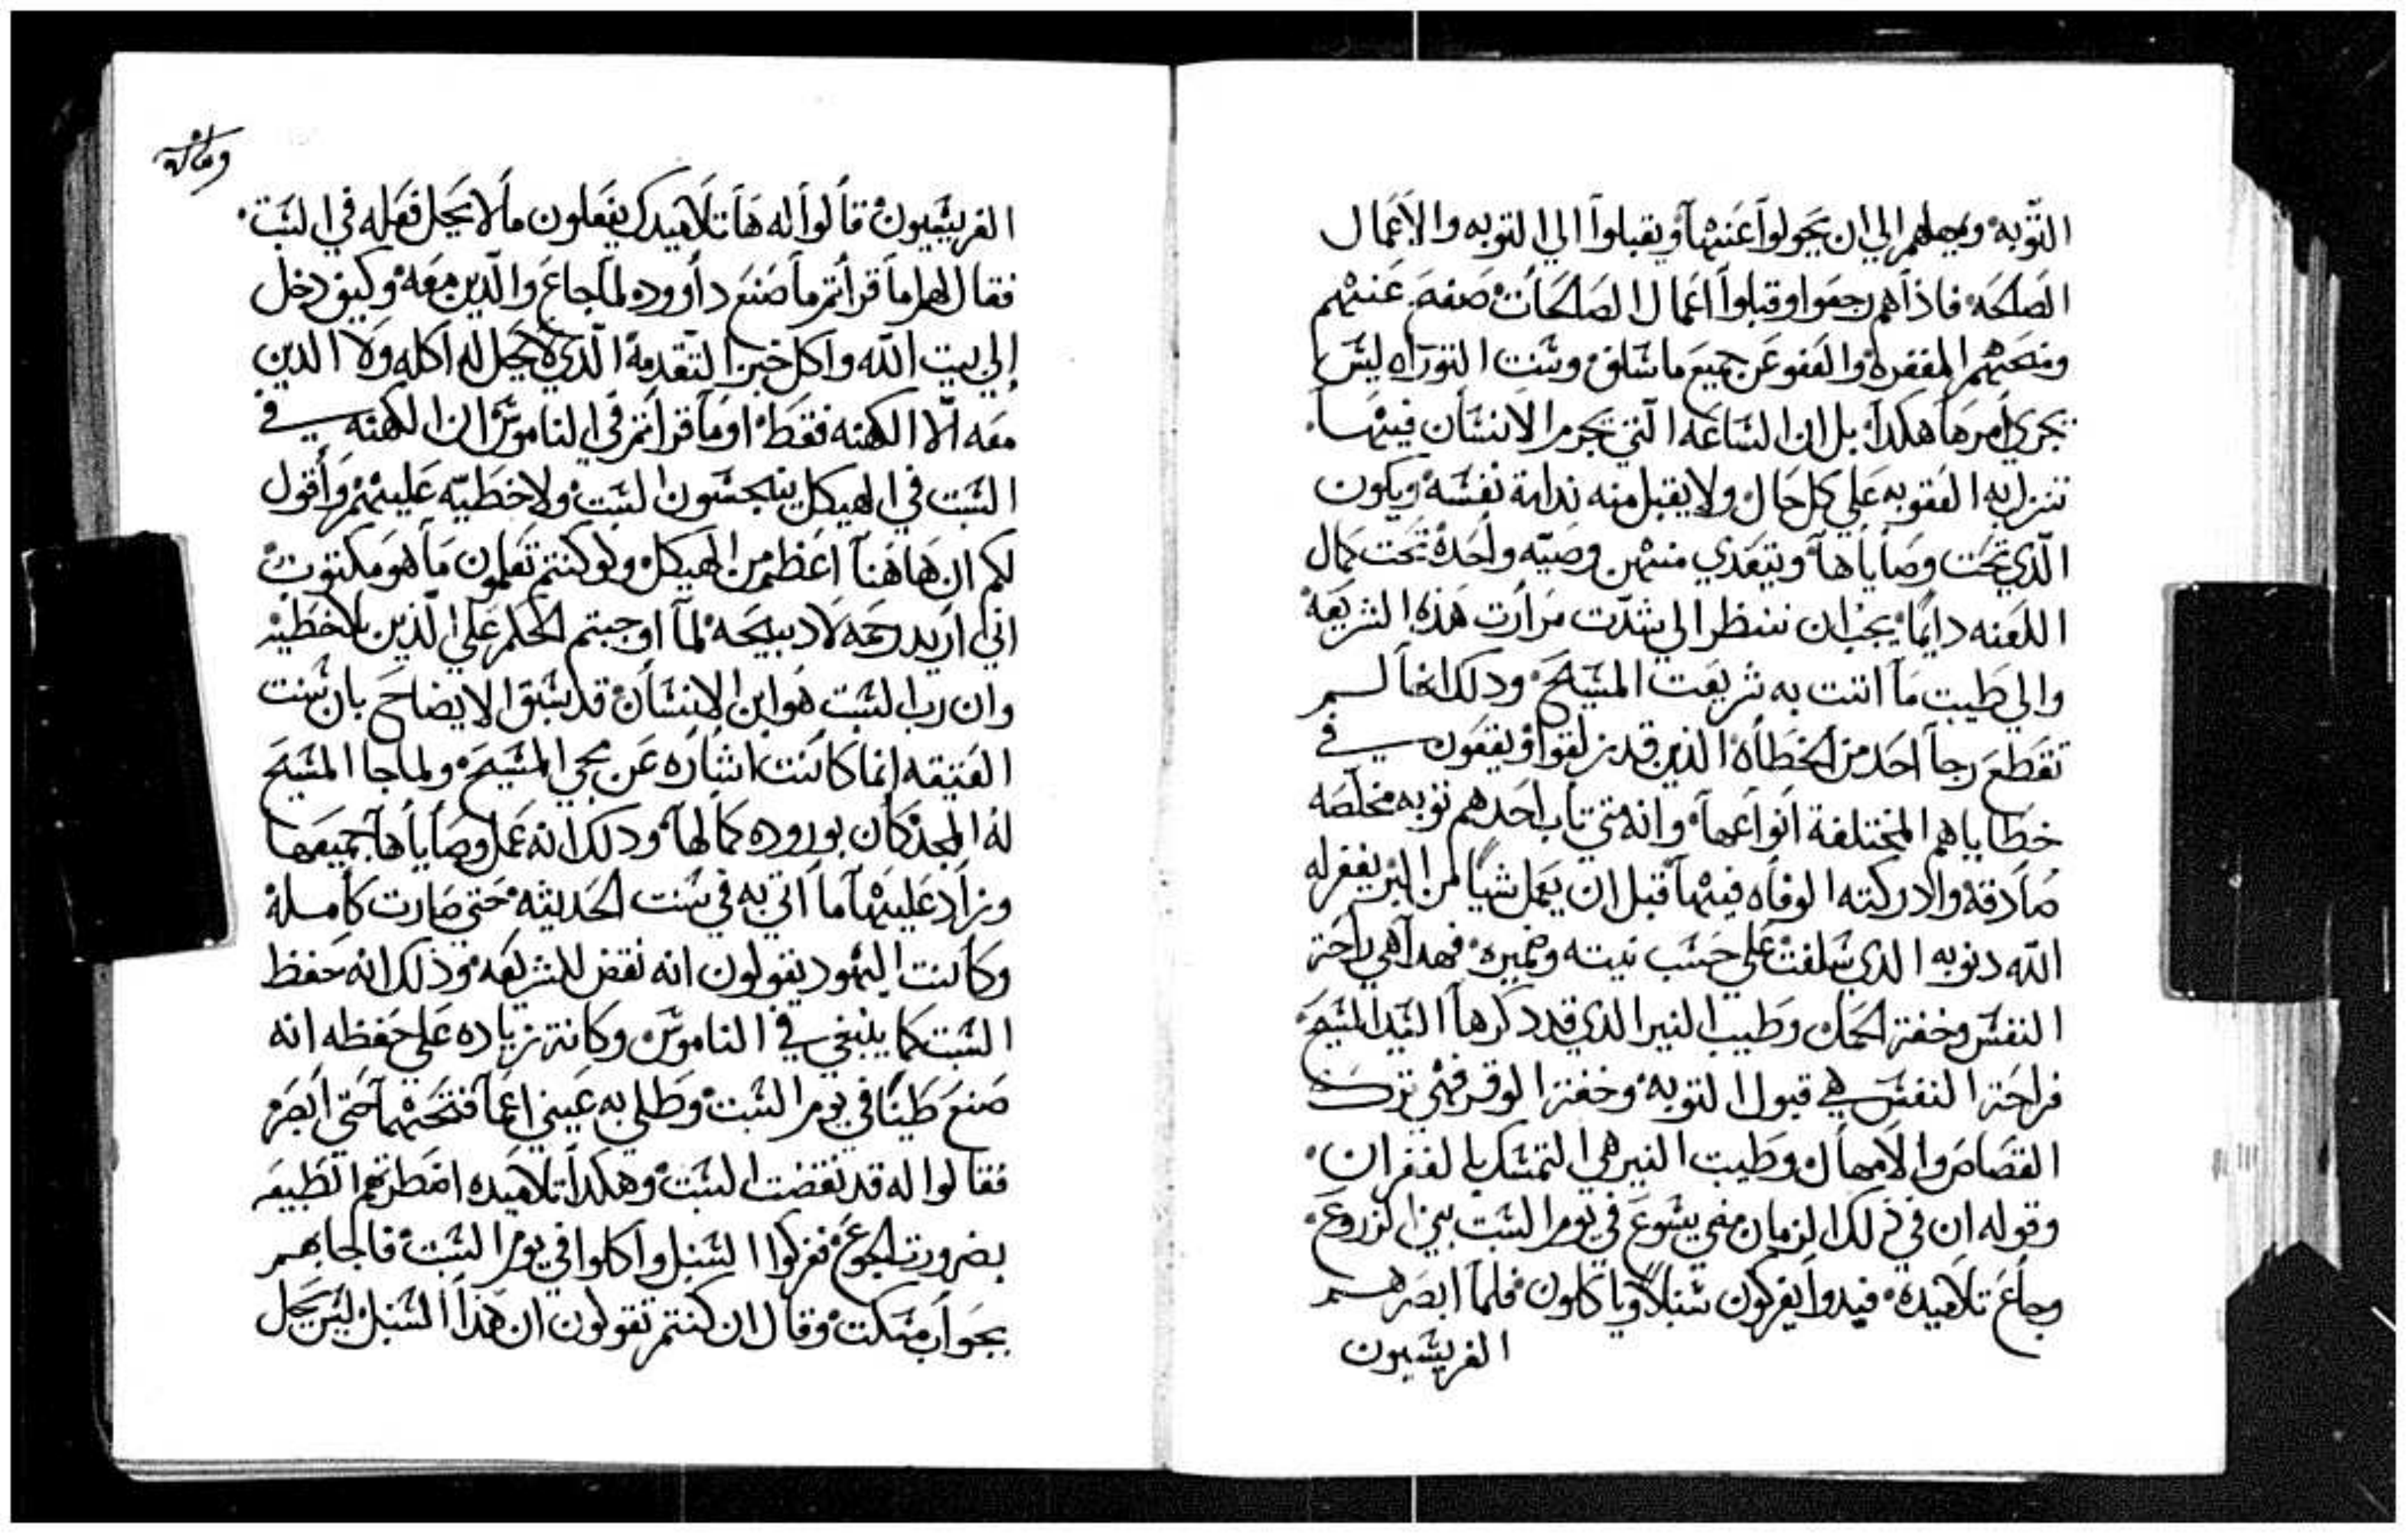 التوبه ويمهلهم الي ان يحولوا عنها ويقبلوا الي التوبه والاعمال
الصالحه فاذا هم رجعوا وقبلوا اعمال الصالحات صفح عنهم
ومنحهم المغفرة والعفو عن جميع ما سلف وسنت التوراه ليس
يجري امرها هكدا بل ان الساعه التي يجرم الانسان فيها
تنزل به العقوبه علي كل حال ولا يقبل منه ندامة نفسه ويكون
الذي تحت وصاياها ويتعدي منهن وصيه واحدة تحت كمال
اللعنه دايما يجب ان ننظر الي شدت مرارت هذه الشريعه
والي طيبت ما اتت به شريعت المسيح ودلك انها لم
تقطع رجا احد من الخطاه الذين قد زلقوا ويقعون في
خطاياهم المختلفة انواعها وانه متي تاب احدهم توبه مخلصه
صادقه وادركته الوفاه فيها قبل ان يعمل شيا من البر يغفر له
الله دنوبه الذي سلفت علي حسب نيته وضميره فهدا هي راحة
النفس وخفة الحمل وطيب النير الذي قد دكرها السيد المسيح
فراحة النفس هي قبول التوبه وخفة الوقر فهي ترك
القصاص والامهال وطيبت النير هي التمسك بالغفران
وقوله ان في ذلك الزمان مضي يسوع في يوم السبت بين الزروع
وجاع تلاميده فبدوا يفركون سنبلا وياكلون فلما ابصرهم
الفريسيون
وماىه
الفريسيون قالوا له ها تلاميدك يفعلون ما لا يحل فعله في السبت
فقال لهم اما قراتم ما صنع داوود لما جاع والذين معه وكيف دخل
إلي بيت الله واكل خبز التقدمة الذي لا يحل له اكله ولا الدين
معه الا الكهنه فقط او ما قراتم في الناموس ان الكهنه في
السبت في الهيكل ينجسون السبت ولا خطيه عليهم واقول
لكم ان هاهنا اعظم من الهيكل ولو كنتم تعلمون ما هو مكتوب
اني اريد رحمه لا دبيحه لما اوجبتم الحكم علي الذين بلا خطيه
وان رب السبت هو ابن الانسان قد سبق الايضاح بان سنت
العتيقه انما كانت اشاره عن مجي المسيح ولما جا المسيح
له المجد كان بوروده كمالها ودلك انه عمل وصاياها جميعها
وزاد عليها ما اتي به في سنت الحديثه حتي صارت كاملة
وكانت اليهود يقولون انه نقض للشريعه وذلك انه حفظ
السبت كما ينبغي في الناموس وكانة زياده علي حفظه انه
صنع طينا في يوم السبت وطلي به عيني اعما ففتحهما حتي ابصر
فقالوا له قد نقضت السبت وهكدا تلاميده اضطرتهم الطبيعه
بضرورت الجوع ففركوا السنبل واكلوا في يوم السبت فاجابهم
بجواب مسكت وقال ان كنتم تقولون ان هذا السنبل ليس يحل